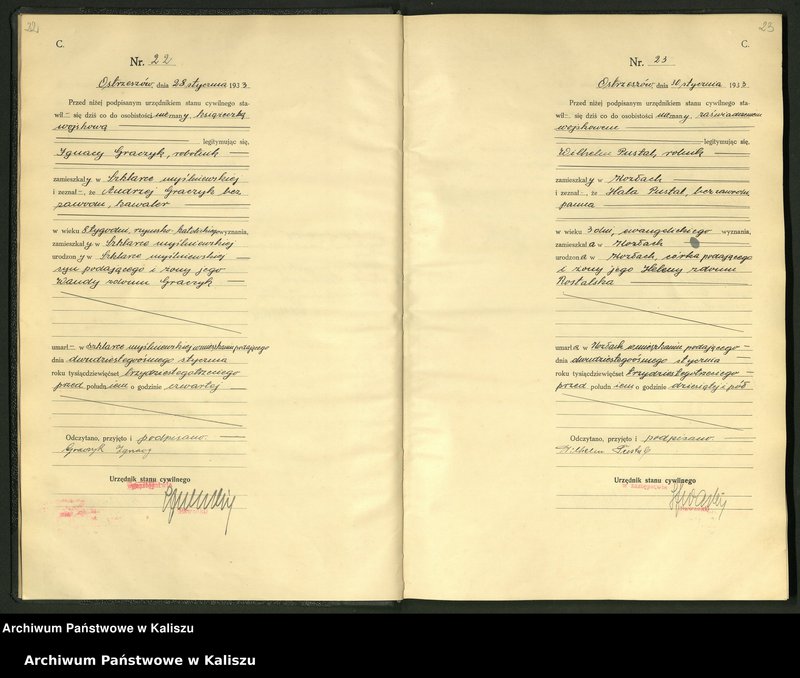 22
C.
Nr. 22
Ostrzeszów, dnia 28 stycznia 1933
Przed niżej podpisanym urzędnikiem stanu cywilnego sta-
wił – się dziś co do osobistości uznany, książeczką
wojskową
legitymując się,
Ignacy Graczyk, robotnik
zamieszkały w Szklarce myślniewskiej
i zeznał –, że Andrzej Graczyk bez
zawodu, kawaler
w wieku 8 tygodni, rzymsko-katolickiego wyznania,
zamieszkały w Szklarce myślniewskiej
urodzony w Szklarce myślniewskiej
syn podającego i żony jego
Wandy z domu Graczyk
umarł – w Szklarce myślniewskiej w mieszkaniu podającego
dnia dwudziestegoósmego stycznia
roku tysiącdziewięćset trzydziestegotrzeciego
przed południem o godzinie czwartej
Odczytano, przyjęto i podpisano.
Graczyk Ignacy
Urzędnik stanu cywilnego
23
C.
Nr. 23
Ostrzeszów, dnia 30 stycznia 1933
Przed niżej podpisanym urzędnikiem stanu cywilnego sta-
wił – się dziś co do osobistości uznany zaświadczeniem
wojskowem
legitymując się,
Wilhelm Pustał, rolnik
zamieszkały w Kozłach
i zeznał –, że Hala Pustał, bez zawodu,
panna
w wieku 3 dni, ewangelickiego wyznania,
zamieszkała w Kozłach
urodzona w Kozłach, córka podającego
i żony jego Heleny z domu
Rostalska
umarła w Kozłach w mieszkaniu podającego
dnia dwudziestegoósmego stycznia
roku tysiącdziewięćset trzydziestegotrzeciego
przed południem o godzinie dziesiątej i pół
Odczytano, przyjęto i podpisano.
Wilhelm Pustał
Urzędnik stanu cywilnego
w zastępstwie
Archiwum Państwowe w Kaliszu
Archiwum Państwowe w Kaliszu